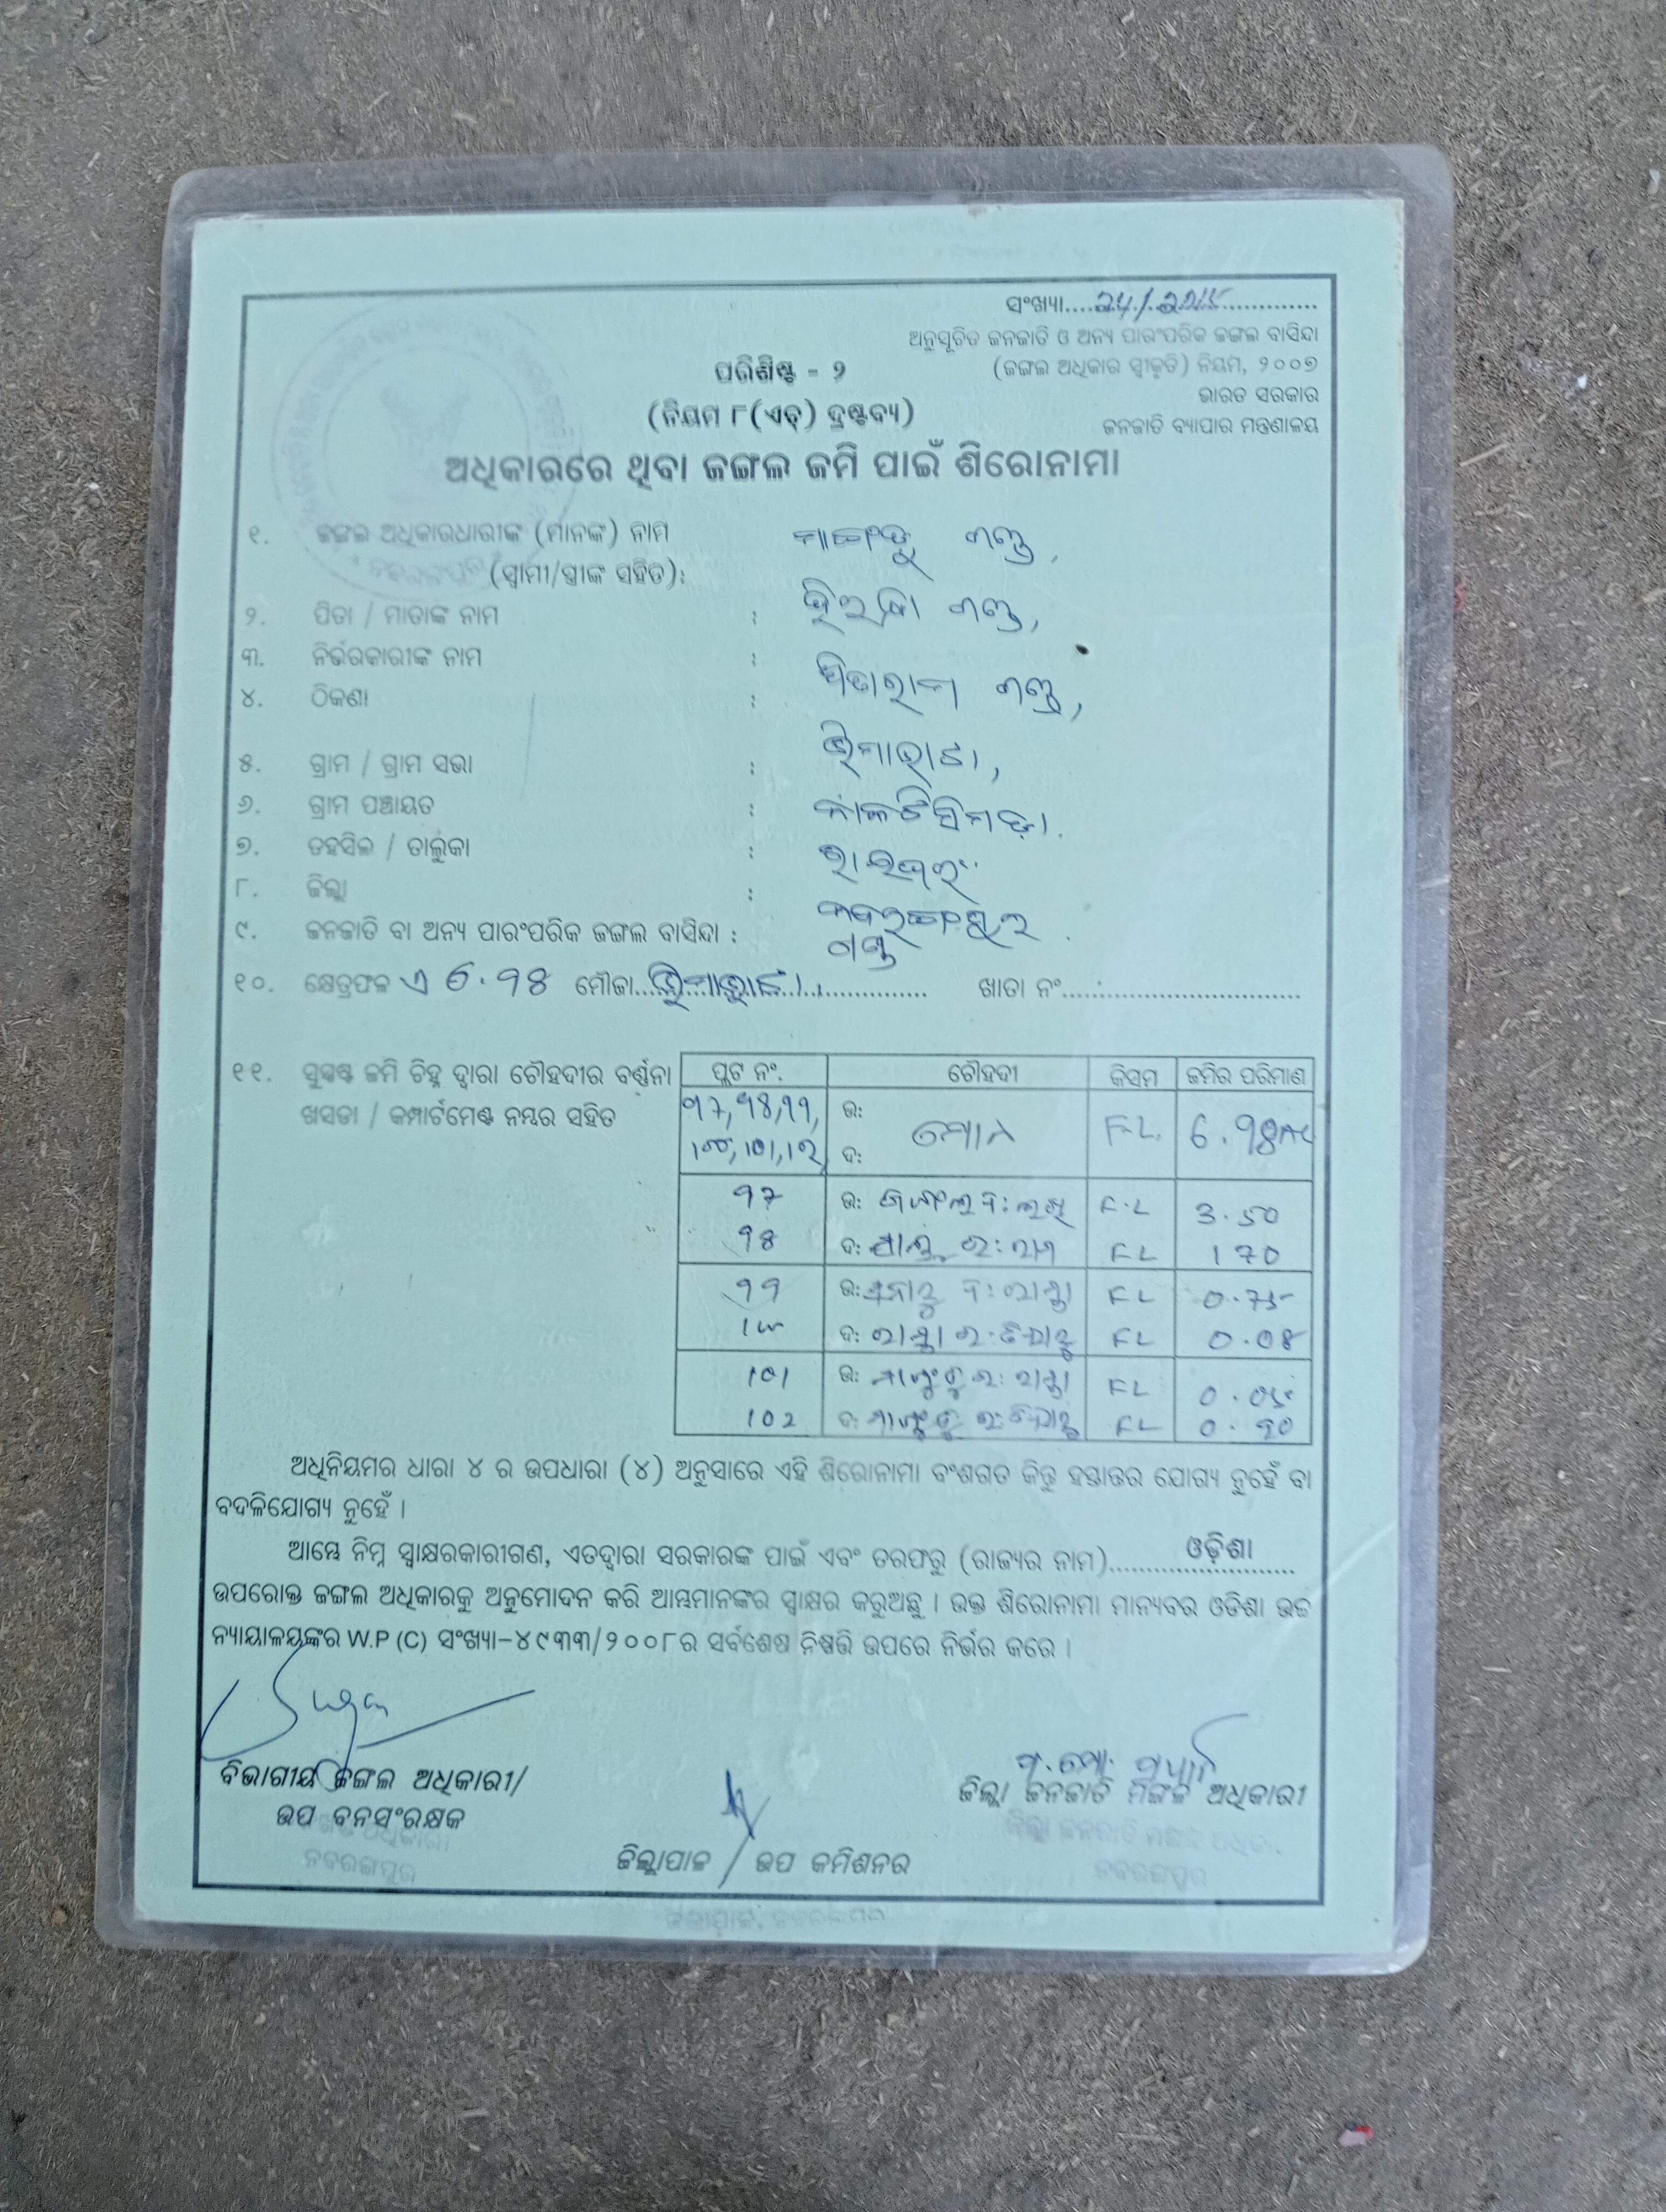 ସଂଖ୍ୟା....24/2015.............
ଅନୁସୂଚିତ ଜନଜାତି ଓ ଅନ୍ୟ ପାରଂପରିକ ଜଙ୍ଗଲ ବାସିନ୍ଦା
(ଜଙ୍ଗଲ ଅଧିକାର ସ୍ୱୀକୃତି) ନିୟମ, ୨୦୦୭
ଭାରତ ସରକାର
ଜନଜାତି ବ୍ୟାପାର ମନ୍ତ୍ରଣାଳୟ
ପରିଶିଷ୍ଟ - ୨
(ନିୟମ ୮(ଏଚ୍) ଦ୍ରଷ୍ଟବ୍ୟ)
ଅଧିକାରରେ ଥିବା ଜଙ୍ଗଲ ଜମି ପାଇଁ ଶିରୋନାମା
୧. ଜଙ୍ଗଲ ଅଧିକାରଧାରୀଙ୍କ (ମାନଙ୍କ) ନାମ ଗଣ୍ଡ,
(ସ୍ୱାମୀ/ସ୍ତ୍ରୀଙ୍କ ସହିତ):
୨. ପିତା / ମାତାଙ୍କ ନାମ : ଗଣ୍ଡ,
୩. ନିର୍ଭରକାରୀଙ୍କ ନାମ : ସିତାରାମ ଗଣ୍ଡ,
୪. ଠିକଣା :
୫. ଗ୍ରାମ / ଗ୍ରାମ ସଭା :
୬. ଗ୍ରାମ ପଞ୍ଚାୟତ :
୭. ତହସିଲ / ତାଲୁକା : ରାଇଘର
୮. ଜିଲ୍ଲା : ନବରଙ୍ଗପୁର
୯. ଜନଜାତି ବା ଅନ୍ୟ ପାରଂପରିକ ଜଙ୍ଗଲ ବାସିନ୍ଦା : ଗଣ୍ଡ
୧୦. କ୍ଷେତ୍ରଫଳ ଏ 6.98 ମୌଜା.......... ଖାତା ନଂ..............................
୧୧. ସୁସ୍ପଷ୍ଟ ଜମି ଚିହ୍ନ ଦ୍ୱାରା ଚୌହଦୀର ବର୍ଣ୍ଣନା ପ୍ଲଟ ନଂ. ଚୌହଦୀ କିସମ ଜମିର ପରିମାଣ
ଖସଡା / କମ୍ପାର୍ଟମେଣ୍ଟ ନମ୍ବର ସହିତ 97, 98, 99, ଉ: ମୋଟ F.L. 6.98 Ac
100, 101, 102 ଦ:
97 ଉ: F.L 3.50
98 ଦ: FL 1 70
99 ଉ: ଦ: ରାସ୍ତା FL 0.75
100 ଦ: ରାସ୍ତା ଉ: FL 0.08
101 ଉ: ରାସ୍ତା FL 0.05
102 ଦ: FL 0.90
ଅଧିନିୟମର ଧାରା ୪ ର ଉପଧାରା (୪) ଅନୁସାରେ ଏହି ଶିରୋନାମା ବଂଶଗତ କିନ୍ତୁ ହସ୍ତାନ୍ତର ଯୋଗ୍ୟ ନୁହେଁ ବା
ବଦଳିଯୋଗ୍ୟ ନୁହେଁ ।
ଆମ୍ଭେ ନିମ୍ନ ସ୍ୱାକ୍ଷରକାରୀଗଣ, ଏତଦ୍ୱାରା ସରକାରଙ୍କ ପାଇଁ ଏବଂ ତରଫରୁ (ରାଜ୍ୟର ନାମ)......ଓଡ଼ିଶା......
ଉପରୋକ୍ତ ଜଙ୍ଗଲ ଅଧିକାରକୁ ଅନୁମୋଦନ କରି ଆମ୍ଭମାନଙ୍କର ସ୍ୱାକ୍ଷର କରୁଅଛୁ । ଉକ୍ତ ଶିରୋନାମା ମାନ୍ୟବର ଓଡିଶା ଉଚ୍ଚ
ନ୍ୟାୟାଳୟଙ୍କର W.P (C) ସଂଖ୍ୟା-୪୯୩୩/୨୦୦୮ର ସର୍ବଶେଷ ନିଷ୍ପତ୍ତି ଉପରେ ନିର୍ଭର କରେ ।
ବିଭାଗୀୟ ଜଙ୍ଗଲ ଅଧିକାରୀ/
ଉପ ବନସଂରକ୍ଷକ
ନବରଙ୍ଗପୁର
ଜିଲ୍ଲାପାଳ / ଉପ କମିଶନର
ଜିଲ୍ଲାପାଳ, ନବରଙ୍ଗପୁର
ଜିଲ୍ଲା ଜନଜାତି ମଙ୍ଗଳ ଅଧିକାରୀ
ଜିଲ୍ଲା ଜନଜାତି ମଙ୍ଗଳ ଅଧିକାରୀ
ନବରଙ୍ଗପୁର